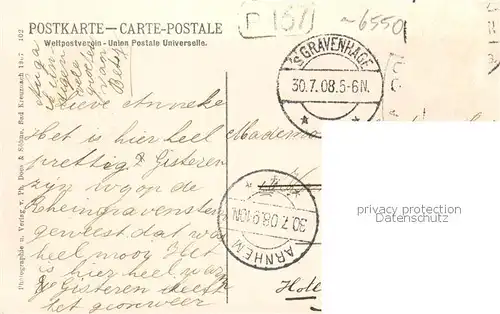 F 157
~6550
POSTKARTE—CARTE-POSTALE
Weltpostverein - Union Postale Universelle.
Photographie u. Verlag v. Ph. Doos & Söhne, Bad Kreuznach 1907 102
'S GRAVENHAGE
30.7.08.5-6N.
Lieve Anneke
Het is hier heel
prettig. Gisteren
zijn wy op de
Rheingravenstein
geweest dat was
heel mooy. Het
is hier heel warm
Gisteren heeft
het geonweer
Mademo
ARNHEM
30.7.08.9-10N.
Hote
privacy protection
Datenschutz